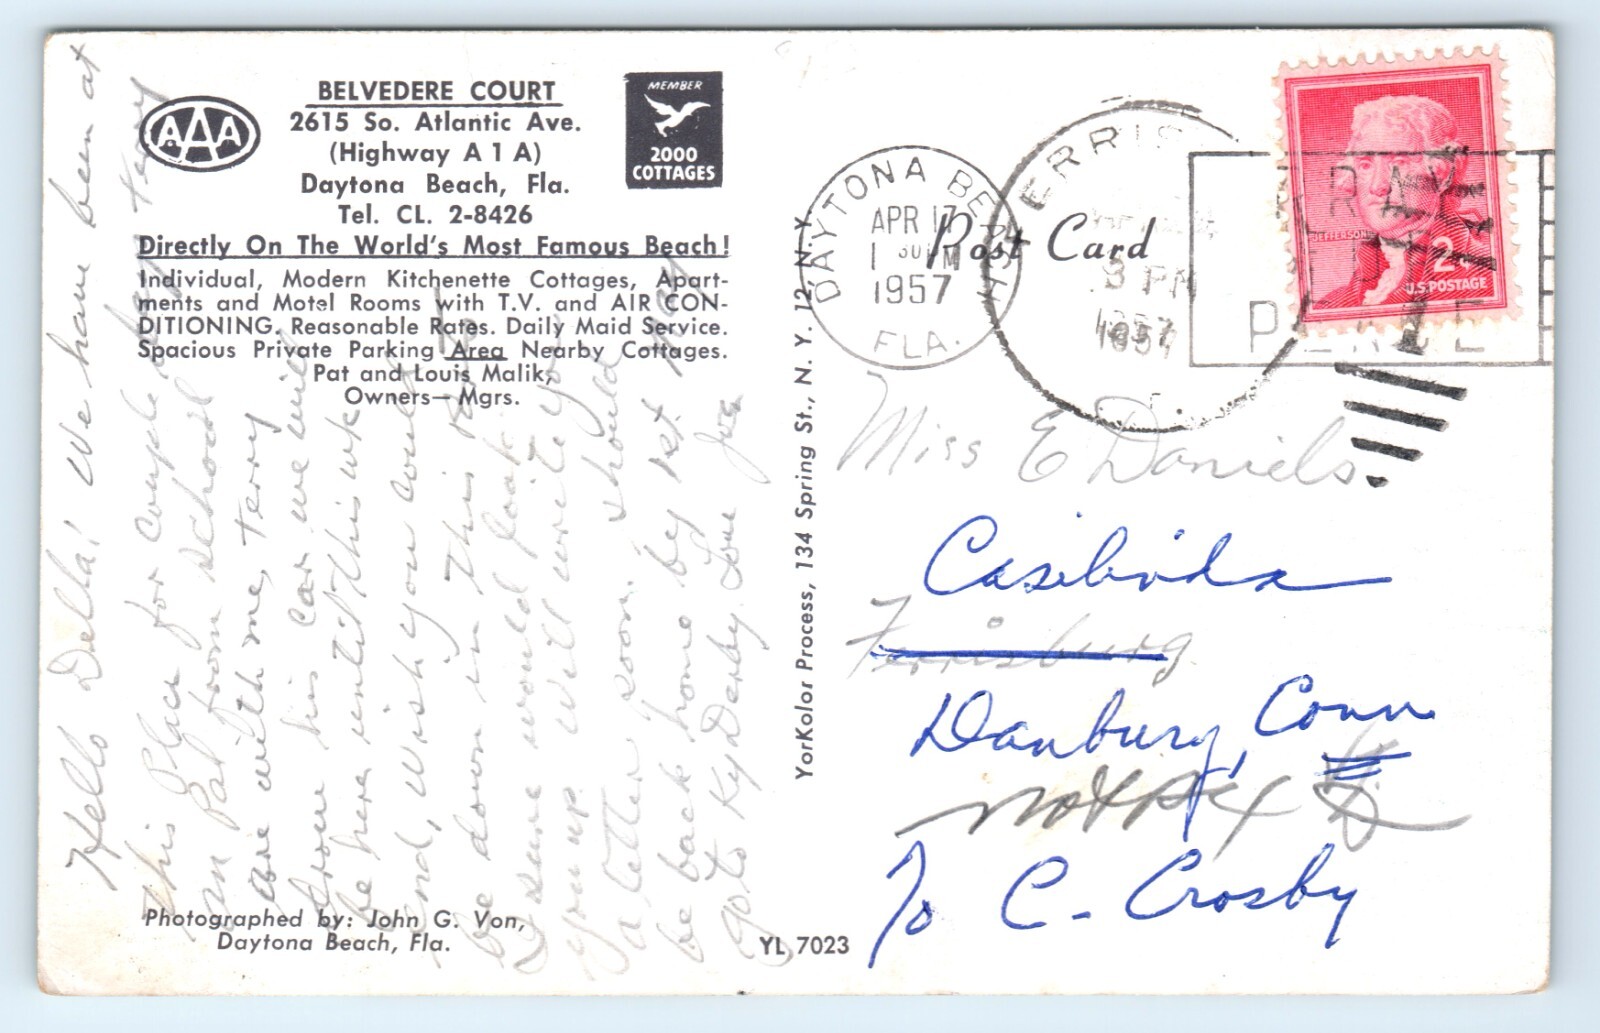 BELVEDERE COURT
2615 So. Atlantic Ave.
(Highway A 1 A)
Daytona Beach, Fla.
Tel. CL. 2-8426
Directly On The World's Most Famous Beach!
Individual, Modern Kitchenette Cottages, Apart-
ments and Motel Rooms with T.V. and AIR CON-
DITIONING. Reasonable Rates. Daily Maid Service.
Spacious Private Parking Area Nearby Cottages.
Pat and Louis Malik,
Owners—Mgrs.
AAA
MEMBER
2000
COTTAGES
Hello Della! We have been at
this place for couple days Terry
an Pat from school
are with me, Terry
drove his car we will
be here until this wk
end, wish you could
be down in this
I sure would look
you up. Will write you
a letter soon. should
be back home by 1st. May
go to Ky Derby. Love
Photographed by: John G. Von,
Daytona Beach, Fla.
YL 7023
YorKolor Process, 134 Spring St., N. Y. 12, N.Y.
Post Card
DAYTONA BEACH
APR 17
1 30 PM
1957
FLA.
FERRIS
3 PM
1957
PRAY
FOR
PEACE
JEFFERSON
2¢
U.S. POSTAGE
Miss E Daniels
Ferrisburg
Danbury, Conn
To C. Crosby